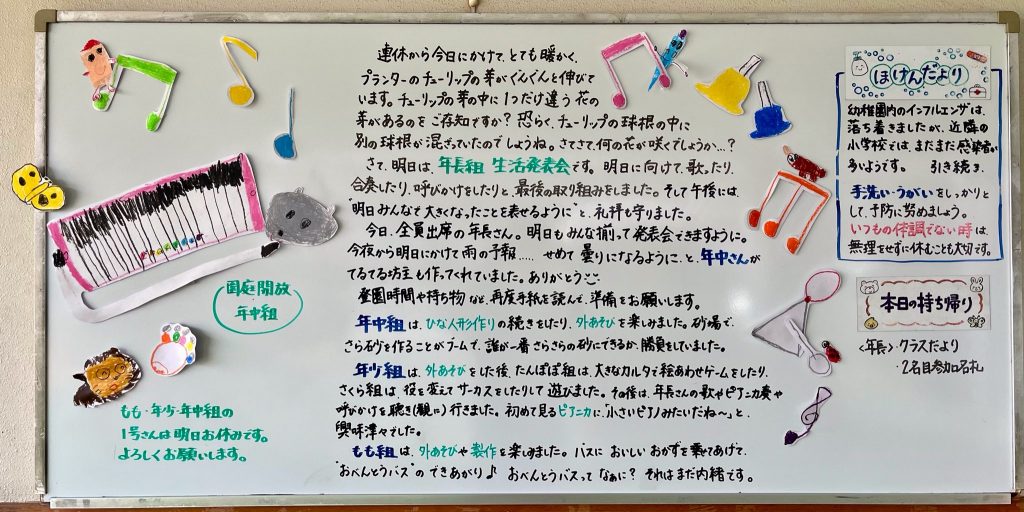 連休から今日にかけて、とても暖かく、
プランターのチューリップの芽がぐんぐんと伸びて
います。チューリップの芽の中に1つだけ違う花の
芽があるのをご存知ですか？恐らく、チューリップの球根の中に
別の球根が混ざっていたのでしょうね。さてさて何の花が咲くでしょうか…？
さて、明日は、年長組 生活発表会です。明日に向けて、歌ったり、
合奏したり、呼びかけをしたりと、最後の取り組みをしました。そして午後には、
"明日みんなで大きくなったことを表せるように"と、礼拝も守りました。
今日、全員出席の年長さん。明日もみんな揃って発表会できますように。
今夜から明日にかけて雨の予報‥‥、せめて曇りになるように、と、年中さんが
てるてる坊主も作ってくれていました。ありがとう
登園時間や持ち物など、再度手紙を読んで、準備をお願いします。
年中組は、ひな人形作りの続きをしたり、外あそびを楽しみました。砂場で、
さら砂を作ることがブームで、誰が一番さらさらの砂にできるか、勝負をしていました。
年少組は、外あそびをした後、たんぽぽ組は、大きなカルタで絵あわせゲームをしたり、
さくら組は、役を変えてサーカスをしたりして遊びました。その後は、年長さんの歌やピアニカ奏や
呼びかけを聴き(観に)行きました。初めて見るピアニカに、「小さいピアノみたいだね〜」と、
興味津々でした。
もも組は、外あそびや製作を楽しみました。バスにおいしいおかずを乗せてあげて、
"おべんとうバス"のできあがり♪ おべんとうバスって なぁに？ それはまだ内緒です。
園庭開放
年中組
もも・年少・年中組の
1号さんは明日お休みです。
よろしくお願いします。
ほけんだより
幼稚園内のインフルエンザは、
落ち着きましたが、近隣の
小学校では、まだまだ感染者が
多いようです。 引き続き、
手洗い・うがいをしっかりと
して、予防に努めましょう。
いつもの体調でない時は
無理をせずに休むことも大切です。
本日の持ち帰り
〈年長〉・クラスだより
・2名目参加名札